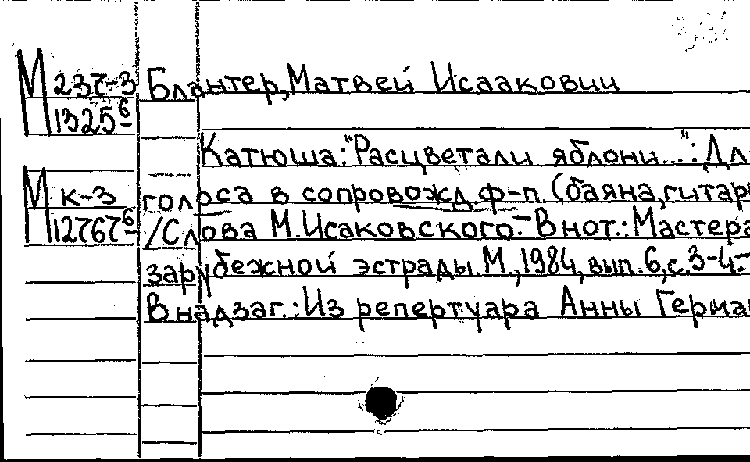 М 237-3 Блантер, Матвей Исаакович
1325 6
Катюша: "Расцветали яблони...": Дл
М к-3 голоса в сопровожд. ф-п. (баяна, гитар
12767 6 /Слова М. Исаковского. – В нот.: Мастера
зарубежной эстрады. М., 1984, вып. 6, с. 3-4.–
В надзаг.: Из репертуара Анны Герман